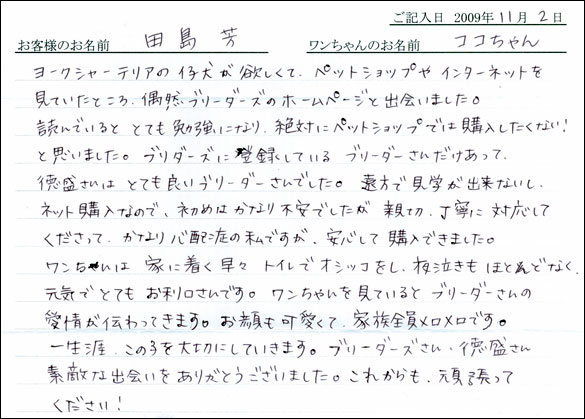 ご記入日 2009年 11月 2日
お客様のお名前 田島 芳 ワンちゃんのお名前 ココちゃん
ヨークシャーテリアの仔犬が欲しくて、ペットショップやインターネットを
見ていたところ、偶然ブリーダーズのホームページと出会いました。
読んでいると とても勉強になり、絶対にペットショップでは購入したくない!
と思いました。ブリダーズに登録している ブリーダーさんだけあって、
徳盛さんは とても良いブリーダーさんでした。 遠方で見学が出来ないし、
ネット購入なので、初めは かなり不安でしたが 親切、丁寧に対応して
くださって、かなり心配症の私ですが、安心して購入できました。
ワンちゃんは 家に着く早々 トイレでオシッコをし、夜泣きもほとんどなく、
元気でとてもお利口さんです。 ワンちゃんを見ていると ブリーダーさんの
愛情が伝わってきます。お顔も可愛くて、家族全員メロメロです。
一生涯、この子を大切にしていきます。ブリーダーズさん、徳盛さん
素敵な出会いをありがとうございました。これからも、頑張って
ください!